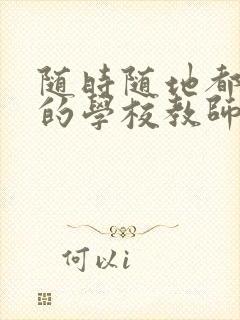 随時随地都
的學校教師
何以i